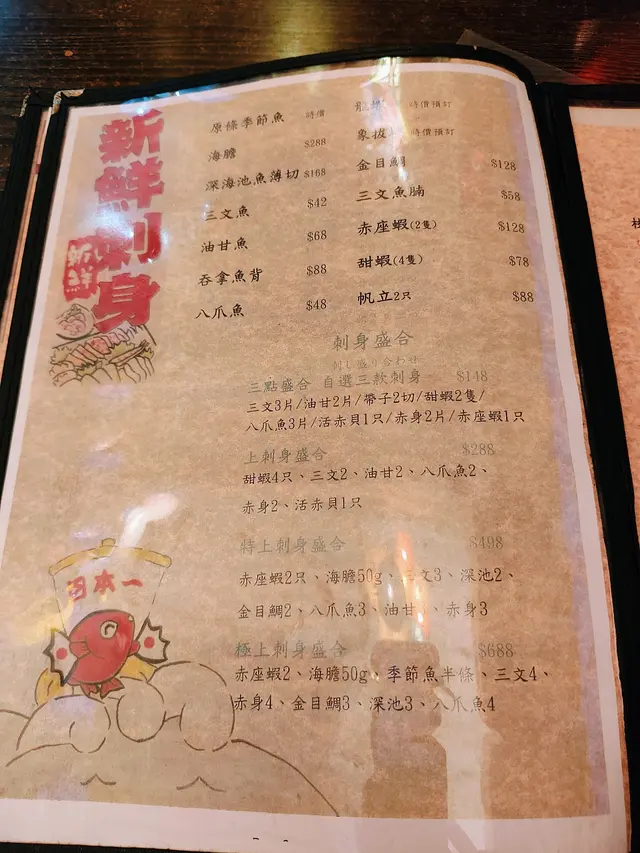 新鮮刺身
新鮮
原條季節魚 時價
海膽 $288
深海池魚薄切 $168
三文魚 $42
油甘魚 $68
吞拿魚背 $88
八爪魚 $48
龍 時價預訂
象拔 時價預訂
金目鯛 $128
三文魚腩 $58
赤座蝦(2隻) $128
甜蝦(4隻) $78
帆立2只 $88
刺身盛合
刺し盛り合わせ
三點盛合 自選三款刺身 $148
三文3片/油甘2片/帶子2切/甜蝦2隻/
八爪魚3片/活赤貝1只/赤身2片/赤座蝦1只
上刺身盛合 $288
甜蝦4只、三文2、油甘2、八爪魚2、
赤身2、活赤貝1只
特上刺身盛合 $498
赤座蝦2只、海膽50g、三文3、深池2、
金目鯛2、八爪魚3、油甘、赤身3
極上刺身盛合 $688
赤座蝦2、海膽50g、季節魚半條、三文4、
赤身4、金目鯛3、深池3、八爪魚4
日本一